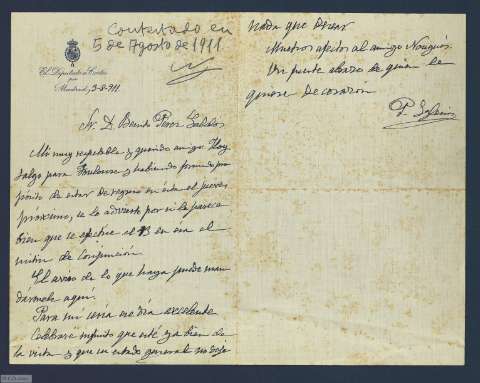 Contestado en
5 de Agosto de 1911
El Diputado a Cortes
por
Madrid, 3-8-911
Sr. D. Benito Pérez Galdós
Mi muy respetable y querido amigo: Hoy
salgo para Toulouse y habiendo formado pro
pósito de estar de regreso en ésta el jueves
próximo, se lo advierto por si le parece
bien que se efectúe el 13 en esa el
mitin de Conjunción.
El aviso de lo que haya puede man
dármelo aquí.
Para mi sería ese día excelente
Celebraré infinito que esté ya bien de
la vista y que su estado general no deje
nada que desear
Nuestros afectos al amigo Nougués.
Un fuerte abrazo de quien le
quiere de corazón
P. Iglesias